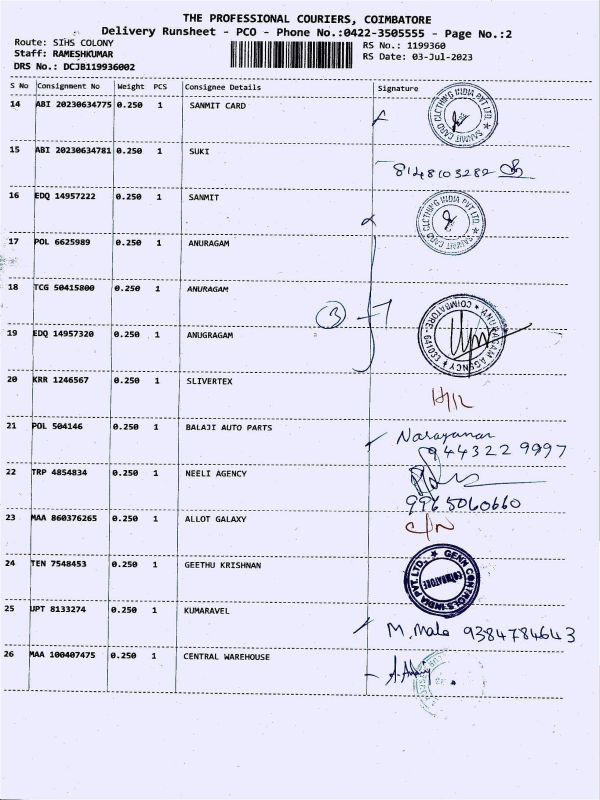 THE PROFESSIONAL COURIERS, COIMBATORE
Delivery Runsheet - PCO - Phone No.:0422-3505555 - Page No.:2
Route: SIHS COLONY
RS No.: 1199360
Staff: RAMESHKUMAR
RS Date: 03-Jul-2023
DRS No.: DCJB119936002
S No Consignment No Weight PCS Consignee Details Signature
14 ABI 20230634775 0.250 1 SANMIT CARD
SANMIT CARD CLOTHING INDIA PVT LTD.
15 ABI 20230634781 0.250 1 SUKI
8148103282
16 EDQ 14957222 0.250 1 SANMIT
SANMIT CARD CLOTHING INDIA PVT LTD.
17 POL 6625989 0.250 1 ANURAGAM
18 TCG 50415800 0.250 1 ANURAGAM
3
19 EDQ 14957320 0.250 1 ANUGRAGAM
ANURAGAM AGENCY COIMBATORE-
20 KRR 1246567 0.250 1 SLIVERTEX
21 POL 504146 0.250 1 BALAJI AUTO PARTS
Narayanan
944322 9997
22 TRP 4854834 0.250 1 NEELI AGENCY
9965060660
23 MAA 860376265 0.250 1 ALLOT GALAXY
C/N
24 TEN 7548453 0.250 1 GEETHU KRISHNAN
GENN CONTROLS INDIA PVT. LTD.
COIMBATORE
25 UPT 8133274 0.250 1 KUMARAVEL
M. Mala 9384784643
26 MAA 100407475 0.250 1 CENTRAL WAREHOUSE